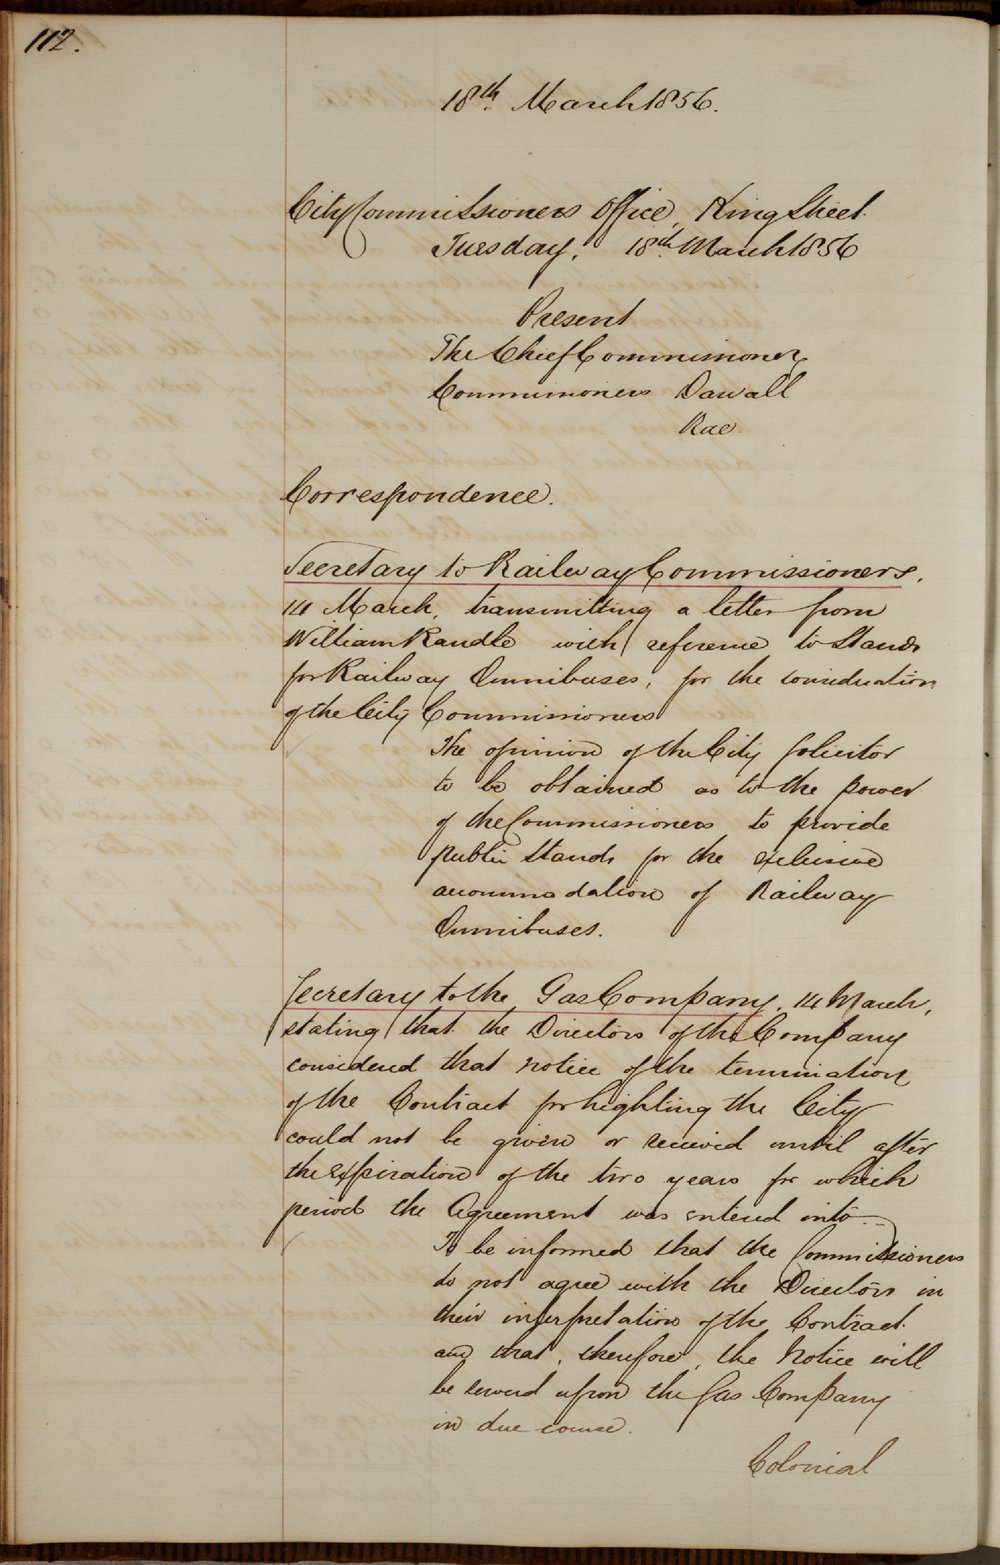 112.
18th. March 1856.
City Commissioners Office, King Street.
Tuesday, 18th. March 1856
Present
The Chief Commissioner,
Commissioners Darvall
Rae
Correspondence.
Secretary to Railway Commissioners,
14 March, transmitting a letter from
William Randle with reference to Stands
for Railway Omnibuses, for the consideration
of the City Commissioners
The opinion of the City Solicitor
to be obtained as to the power
of the Commissioners to provide
public Stands for the exclusive
accommodation of Railway
Omnibuses.
Secretary to the Gas Company, 14 March,
stating that the Directors of the Company
considered that notice of the termination
of the Contract for lighting the City
could not be given or received until after
the expiration of the two years for which
period the Agreement was entered into.
To be informed that the Commissioners
do not agree with the Directors in
their interpretation of the Contract
and that, therefore, the Notice will
be served upon the Gas Company
in due course.
Colonial